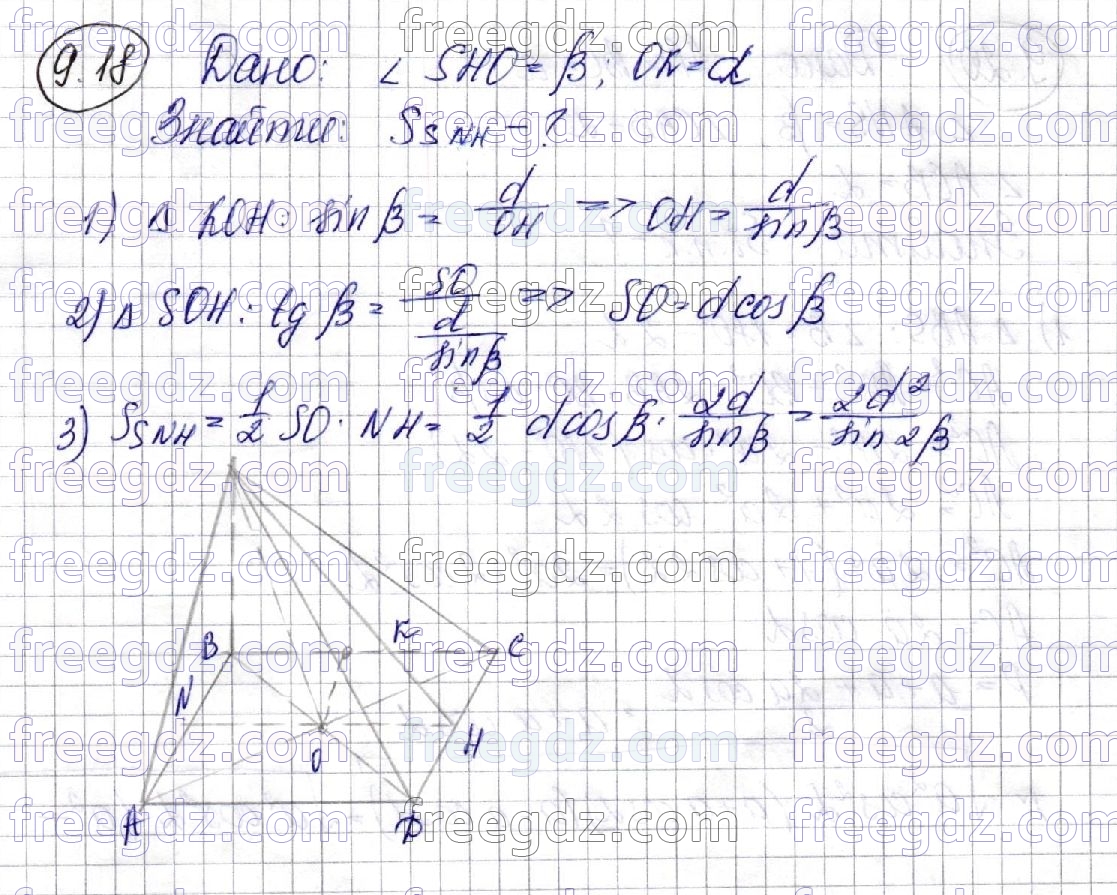 9.18 Дано: ∠ SHO = β; OK = d
Знайти: S SNH - ?
1) Δ KOH: sin β = d/OH => OH = d/sin β
2) Δ SOH: tg β = SO/(d/sin β) => SO = d cos β
3) S SNH = 1/2 SO · NH = 1/2 d cos β · 2d/sin β = 2d²/sin 2β
B K C
N
O H
A D
freegdz.com